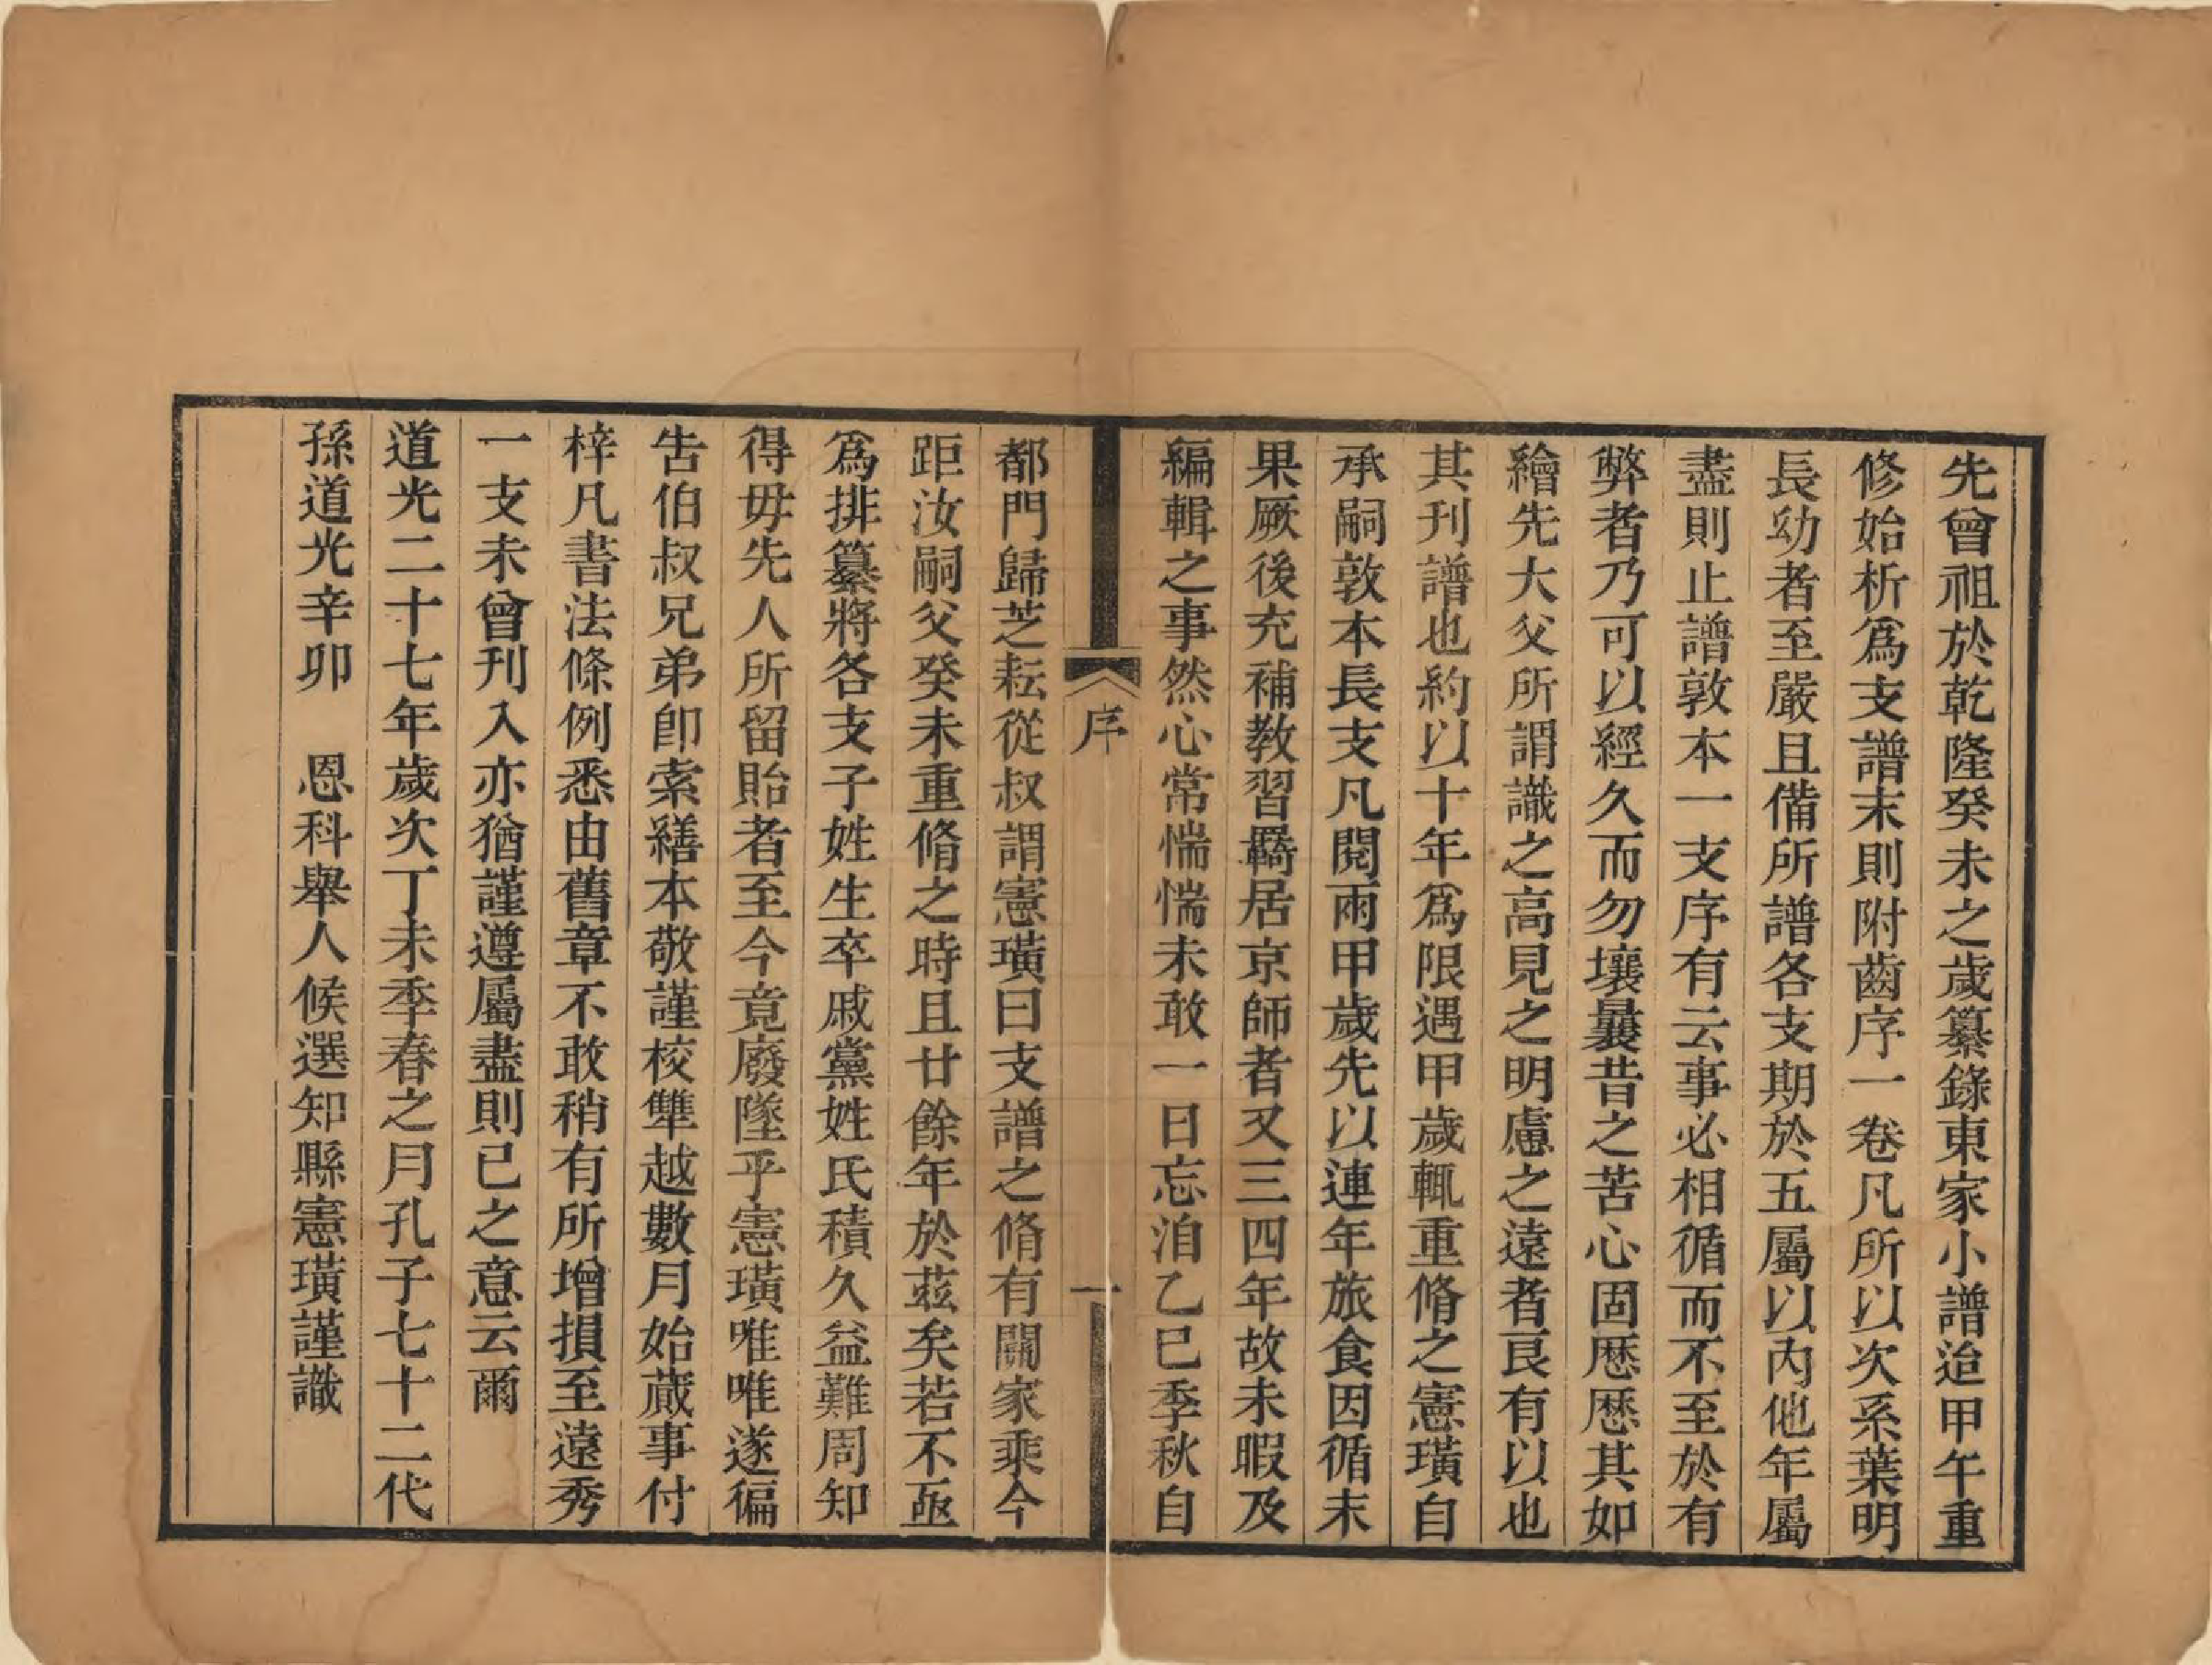 先曾祖於乾隆癸未之歲纂錄東家小譜迨甲午重
修始析爲支譜末則附齒序一卷凡所以次系葉明
長幼者至嚴且備所譜各支期於五屬以內他年屬
盡則止譜敦本一支序有云事必相循而不至於有
弊者乃可以經久而勿壞曩昔之苦心固歷歷其如
繪先大父所謂識之高見之明慮之遠者良有以也
其刊譜也約以十年爲限遇甲歲輒重脩之憲璜自
承嗣敦本長支凡閱兩甲歲先以連年旅食因循未
果厥後充補教習羇居京師者又三四年故未暇及
編輯之事然心常惴惴未敢一日忘洎乙巳季秋自
序
一
都門歸芝耘從叔謂憲璜曰支譜之脩有關家乘今
距汝嗣父癸未重脩之時且廿餘年於茲矣若不亟
爲排纂將各支子姓生卒戚黨姓氏積久益難周知
得毋先人所留貽者至今竟廢墜乎憲璜唯唯遂徧
告伯叔兄弟卽索繕本敬謹校讐越數月始蕆事付
梓凡書法條例悉由舊章不敢稍有所增損至遠秀
一支未曾刊入亦猶謹遵屬盡則已之意云爾
道光二十七年歲次丁未季春之月孔子七十二代
孫道光辛卯　恩科舉人候選知縣憲璜謹識